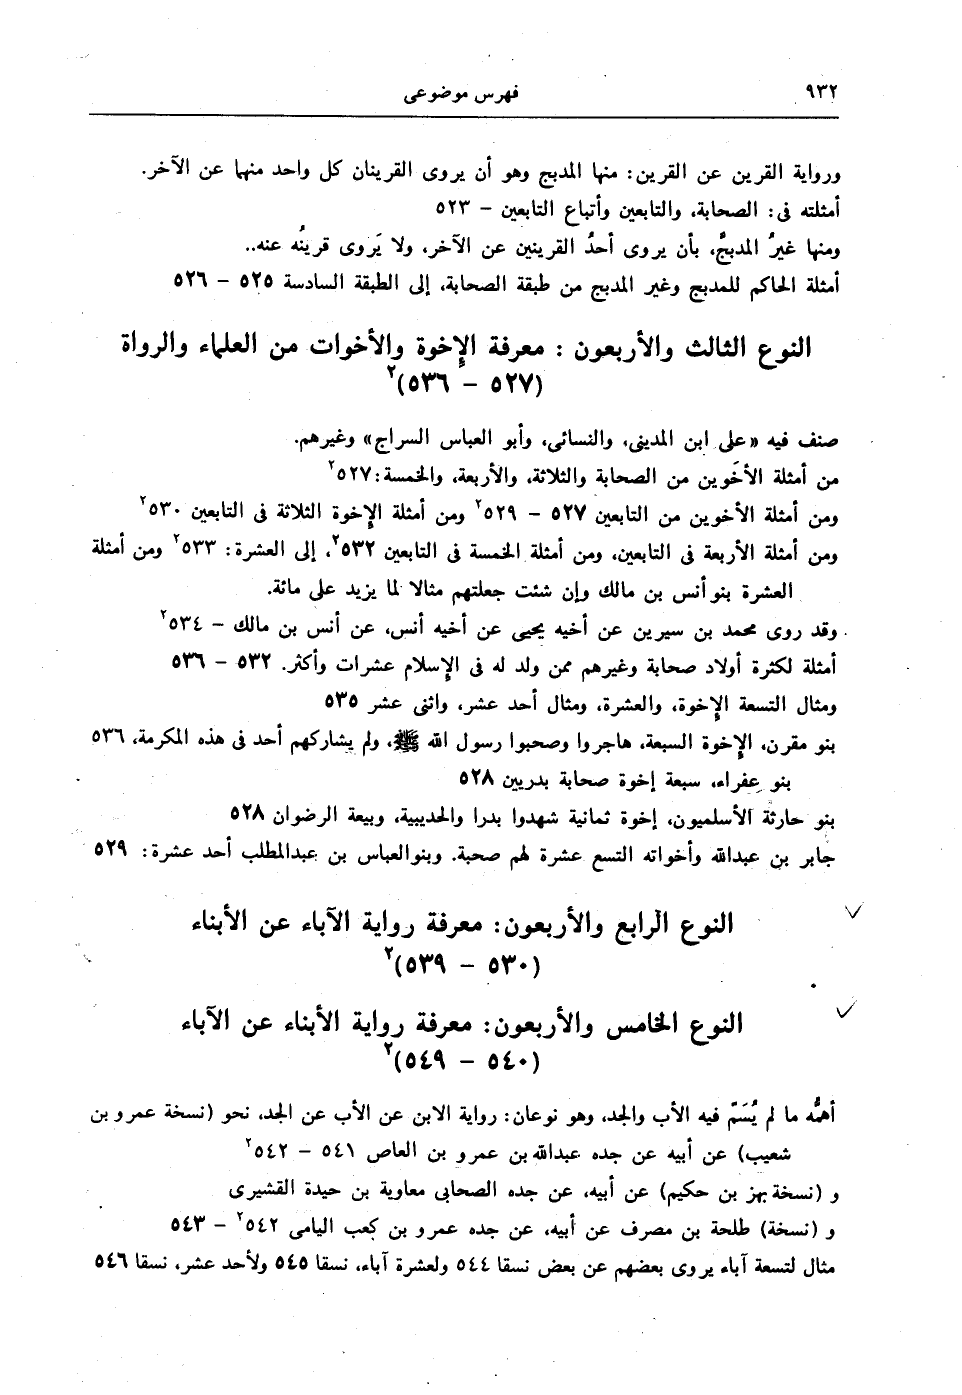 ٩٣٢
فهرس موضوعى
ورواية القرين عن القرين: منها المدبج وهو أن يروى القرينان كل واحد منهما عن الآخر.
أمثلته فى: الصحابة، والتابعين وأتباع التابعين – ٥٢٣
ومنها غيرُ المدبجُ، بأن يروى أحدُ القرينين عن الآخر، ولا يَروى قرينُه عنه..
أمثلة الحاكم للمدبج وغير المدبج من طبقة الصحابة، إلى الطبقة السادسة ٥٢٥ – ٥٢٦
النوع الثالث والأربعون : معرفة الإخوة والأخوات من العلماء والرواة
(٥٢٧ – ٥٣٦)٢
صنف فيه «على ابن المدينى، والنسائى، وأبو العباس السراج» وغيرهم.
من أمثلة الأخَوين من الصحابة والثلاثة، والأربعة، والخمسة: ٥٢٧٢
ومن أمثلة الأخوين من التابعين ٥٢٧ – ٥٢٩٢ ومن أمثلة الإخوة الثلاثة فى التابعين ٥٣٠٢
ومن أمثلة الأربعة فى التابعين، ومن أمثلة الخمسة فى التابعين ٥٣٢٢، إلى العشرة: ٥٣٣٢ ومن أمثلة
العشرة بنو أنس بن مالك وإن شئت جعلتهم مثالا لما يزيد على مائة.
وقد روى محمد بن سيرين عن أخيه يحيى عن أخيه أنس، عن أنس بن مالك – ٥٣٤٢
أمثلة لكثرة أولاد صحابة وغيرهم ممن ولد له فى الإسلام عشرات وأكثر. ٥٣٢ – ٥٣٦
ومثال التسعة الإخوة، والعشرة، ومثال أحد عشر، واثنى عشر ٥٣٥
بنو مقرن، الإخوة السبعة، هاجروا وصحبوا رسول الله ﷺ، ولم يشاركهم أحد فى هذه المكرمة، ٥٣٦
بنو عفراء، سبعة إخوة صحابة بدريين ٥٢٨
بنو حارثة الأسلميون، إخوة ثمانية شهدوا بدرا والحديبية، وبيعة الرضوان ٥٢٨
جابر بن عبدالله وأخواته التسع عشرة لهم صحبة. وبنوالعباس بن عبدالمطلب أحد عشرة: ٥٢٩
النوع الرابع والأربعون: معرفة رواية الآباء عن الأبناء
(٥٣٠ – ٥٣٩)٢
النوع الخامس والأربعون: معرفة رواية الأبناء عن الآباء
(٥٤٠ – ٥٤٩)٢
أهمُّه ما لم يُسَمّ فيه الأب والجد، وهو نوعان: رواية الابن عن الأب عن الجد، نحو (نسخة عمرو بن
شعيب) عن أبيه عن جده عبدالله بن عمرو بن العاص ٥٤١ – ٥٤٢٢
و (نسخة بهز بن حكيم) عن أبيه، عن جده الصحابى معاوية بن حيدة القشيرى
و (نسخة) طلحة بن مصرف عن أبيه، عن جده عمرو بن كعب اليامى ٥٤٢٢ – ٥٤٣
مثال لتسعة آباء يروى بعضهم عن بعض نسقا ٥٤٤ ولعشرة آباء، نسقا ٥٤٥ ولأحد عشر، نسقا ٥٤٦